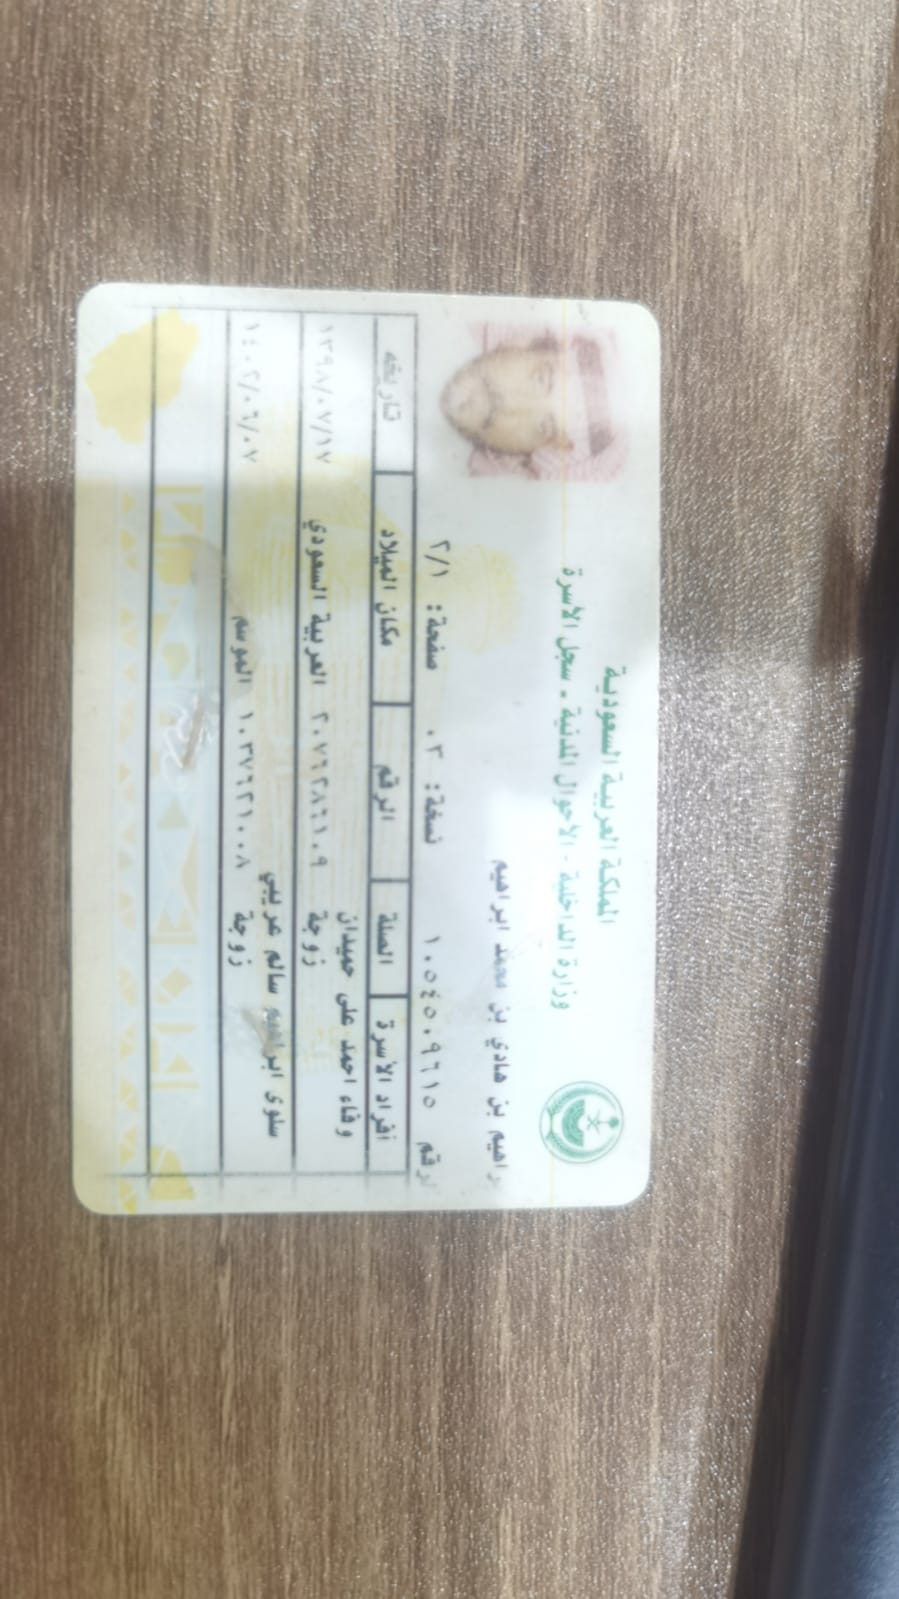 المملكة العربية السعودية
وزارة الداخلية - الأحوال المدنية - سجل الأسرة
إبراهيم بن هادي بن محمد ابراهيم
رقم ١٠٥٤٥٠٩٦١٥ نسخة: ٠٣ صفحة: ٢/١
أفراد الأسرة الصلة الرقم مكان الميلاد تاريخه
وفاء احمد على حميدان
زوجة ٢٠٧٦٢٨٦١٠٩ العربية السعودي ١٣٩٨/٠٧/١٧
سلوى ابراهيم سالم عريبي
زوجة ١٠٣٧٦٢١٠٠٨ الموسم ١٤٠٢/٠٦/٠٧